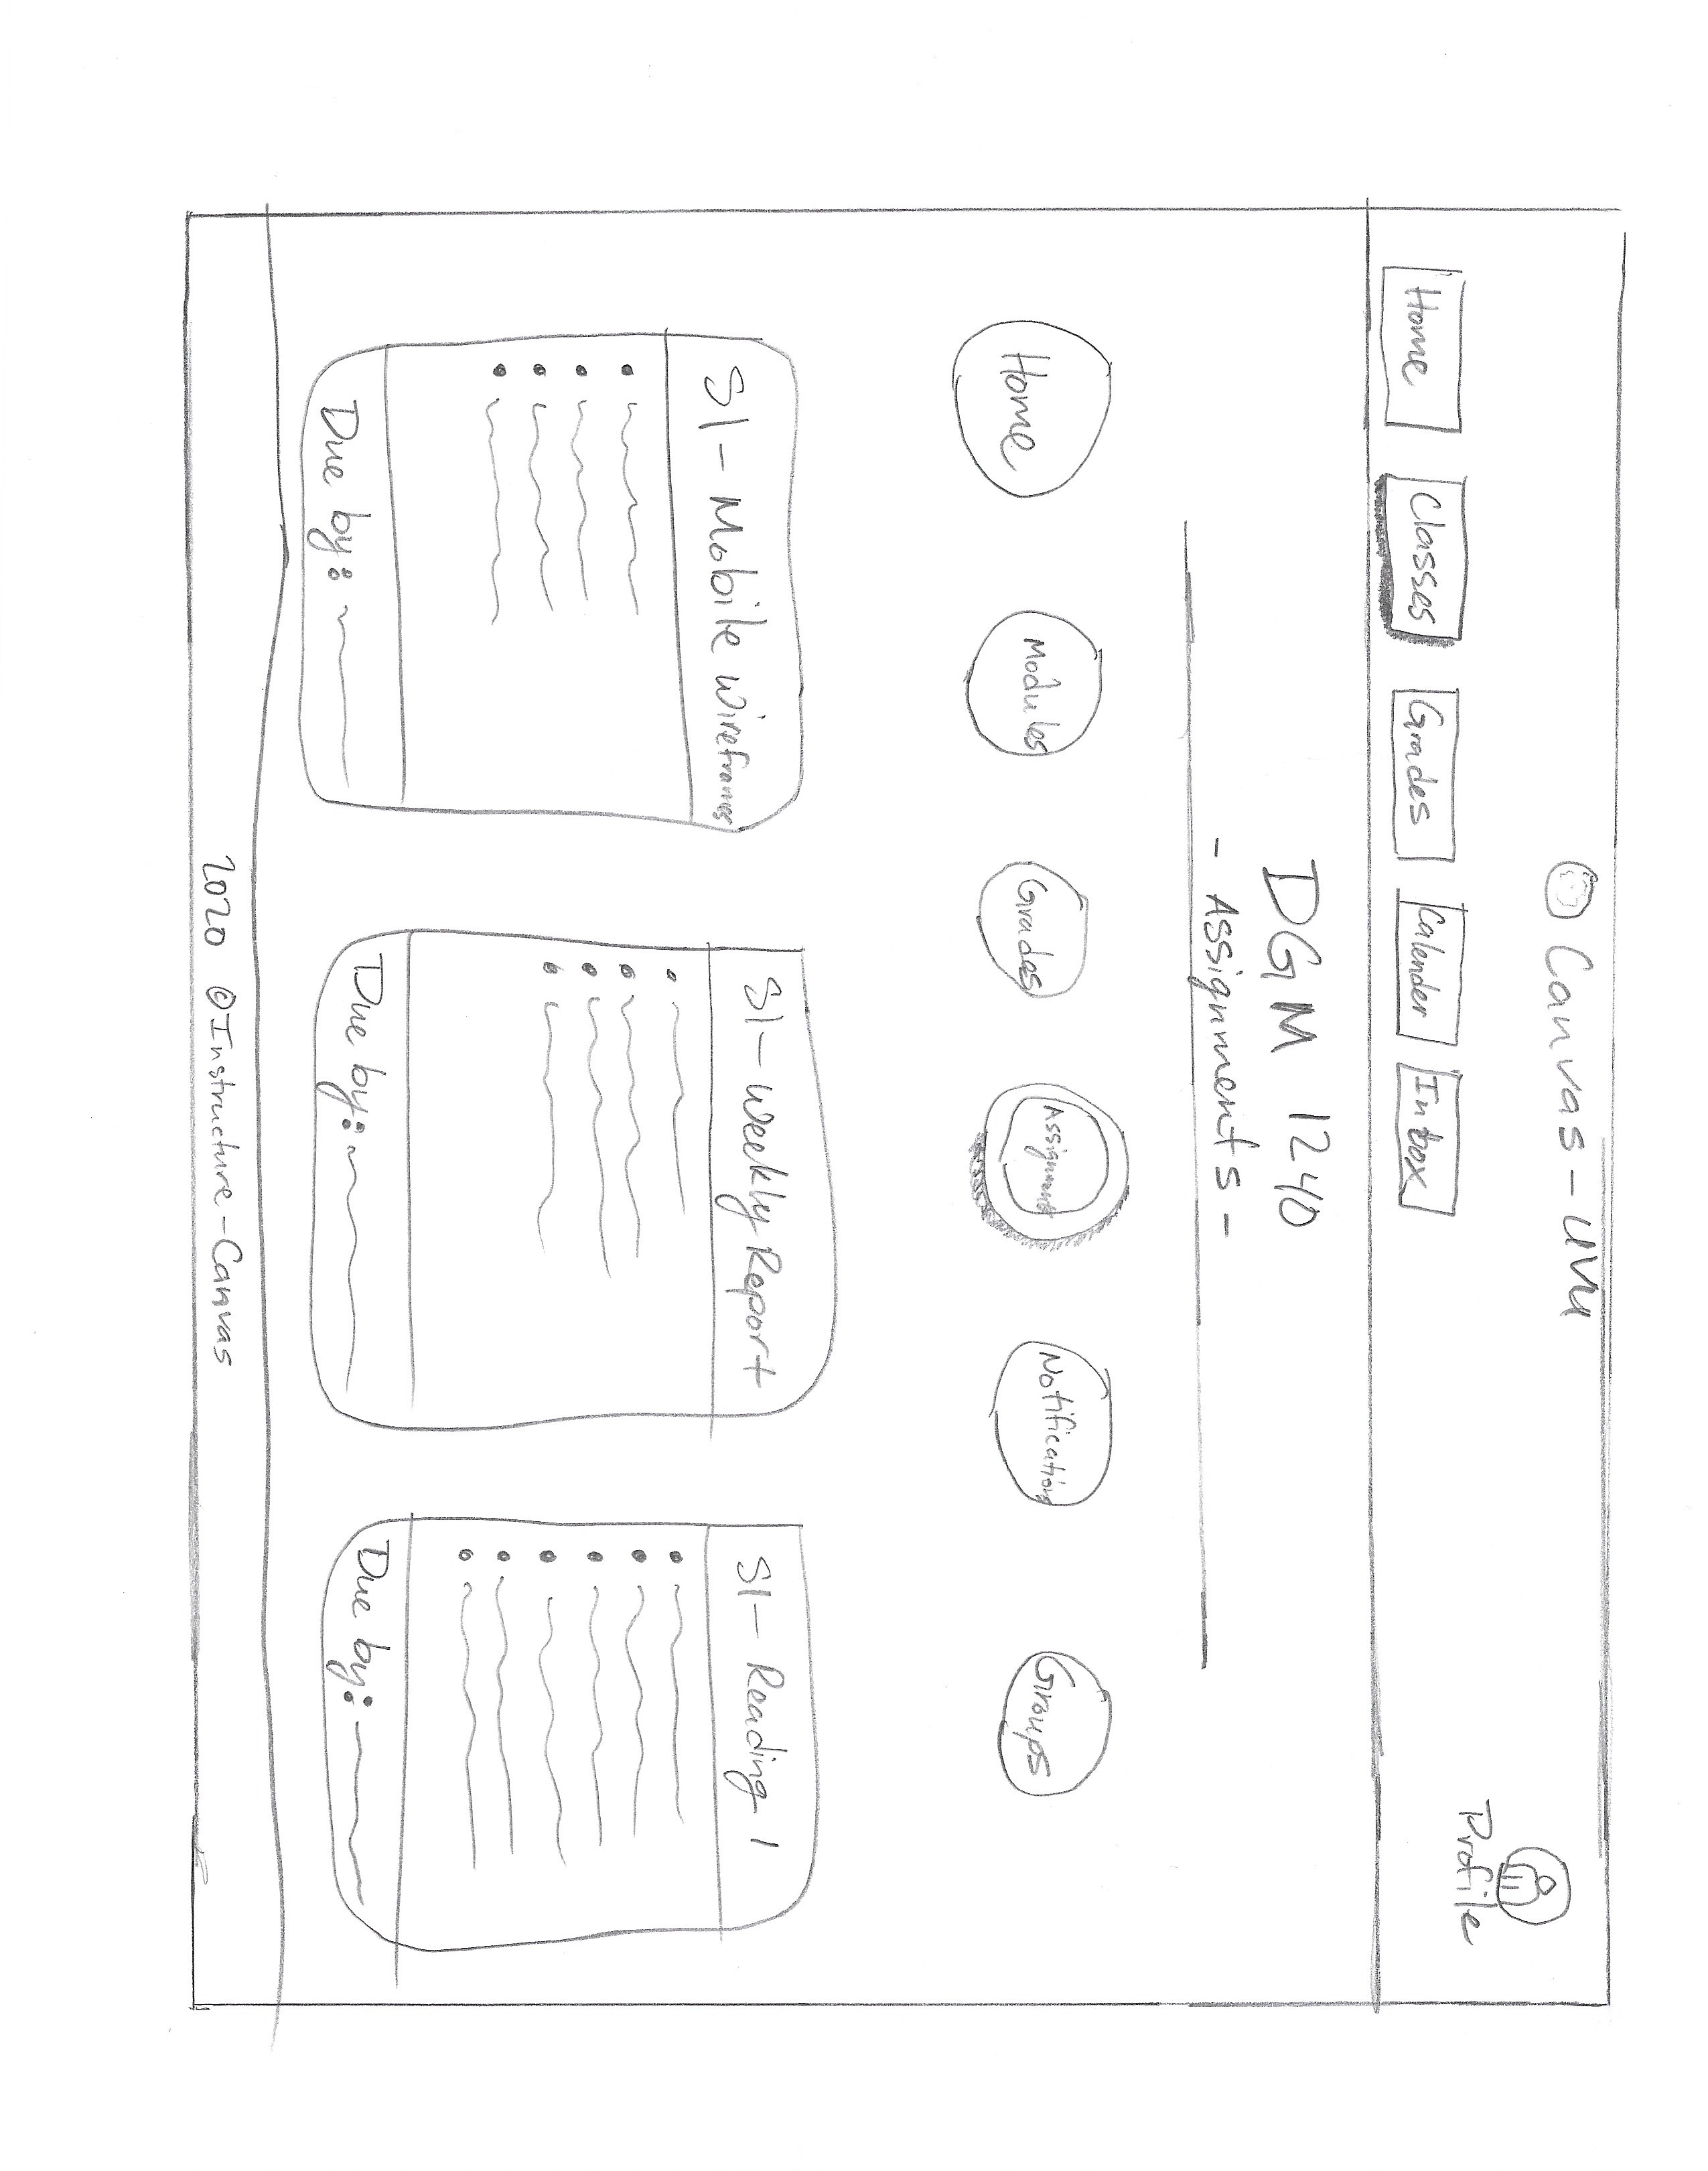 Canvas - UVU
Profile
Home Classes Grades Calender Inbox
DGM 1240
- Assignments -
Home Modules Grades Assignments Notifications Groups
S1 - Mobile Wireframes
Due by:
S1 - Weekly Report
Due by:
S1 - Reading 1
Due by:
2020 © Instructure - Canvas